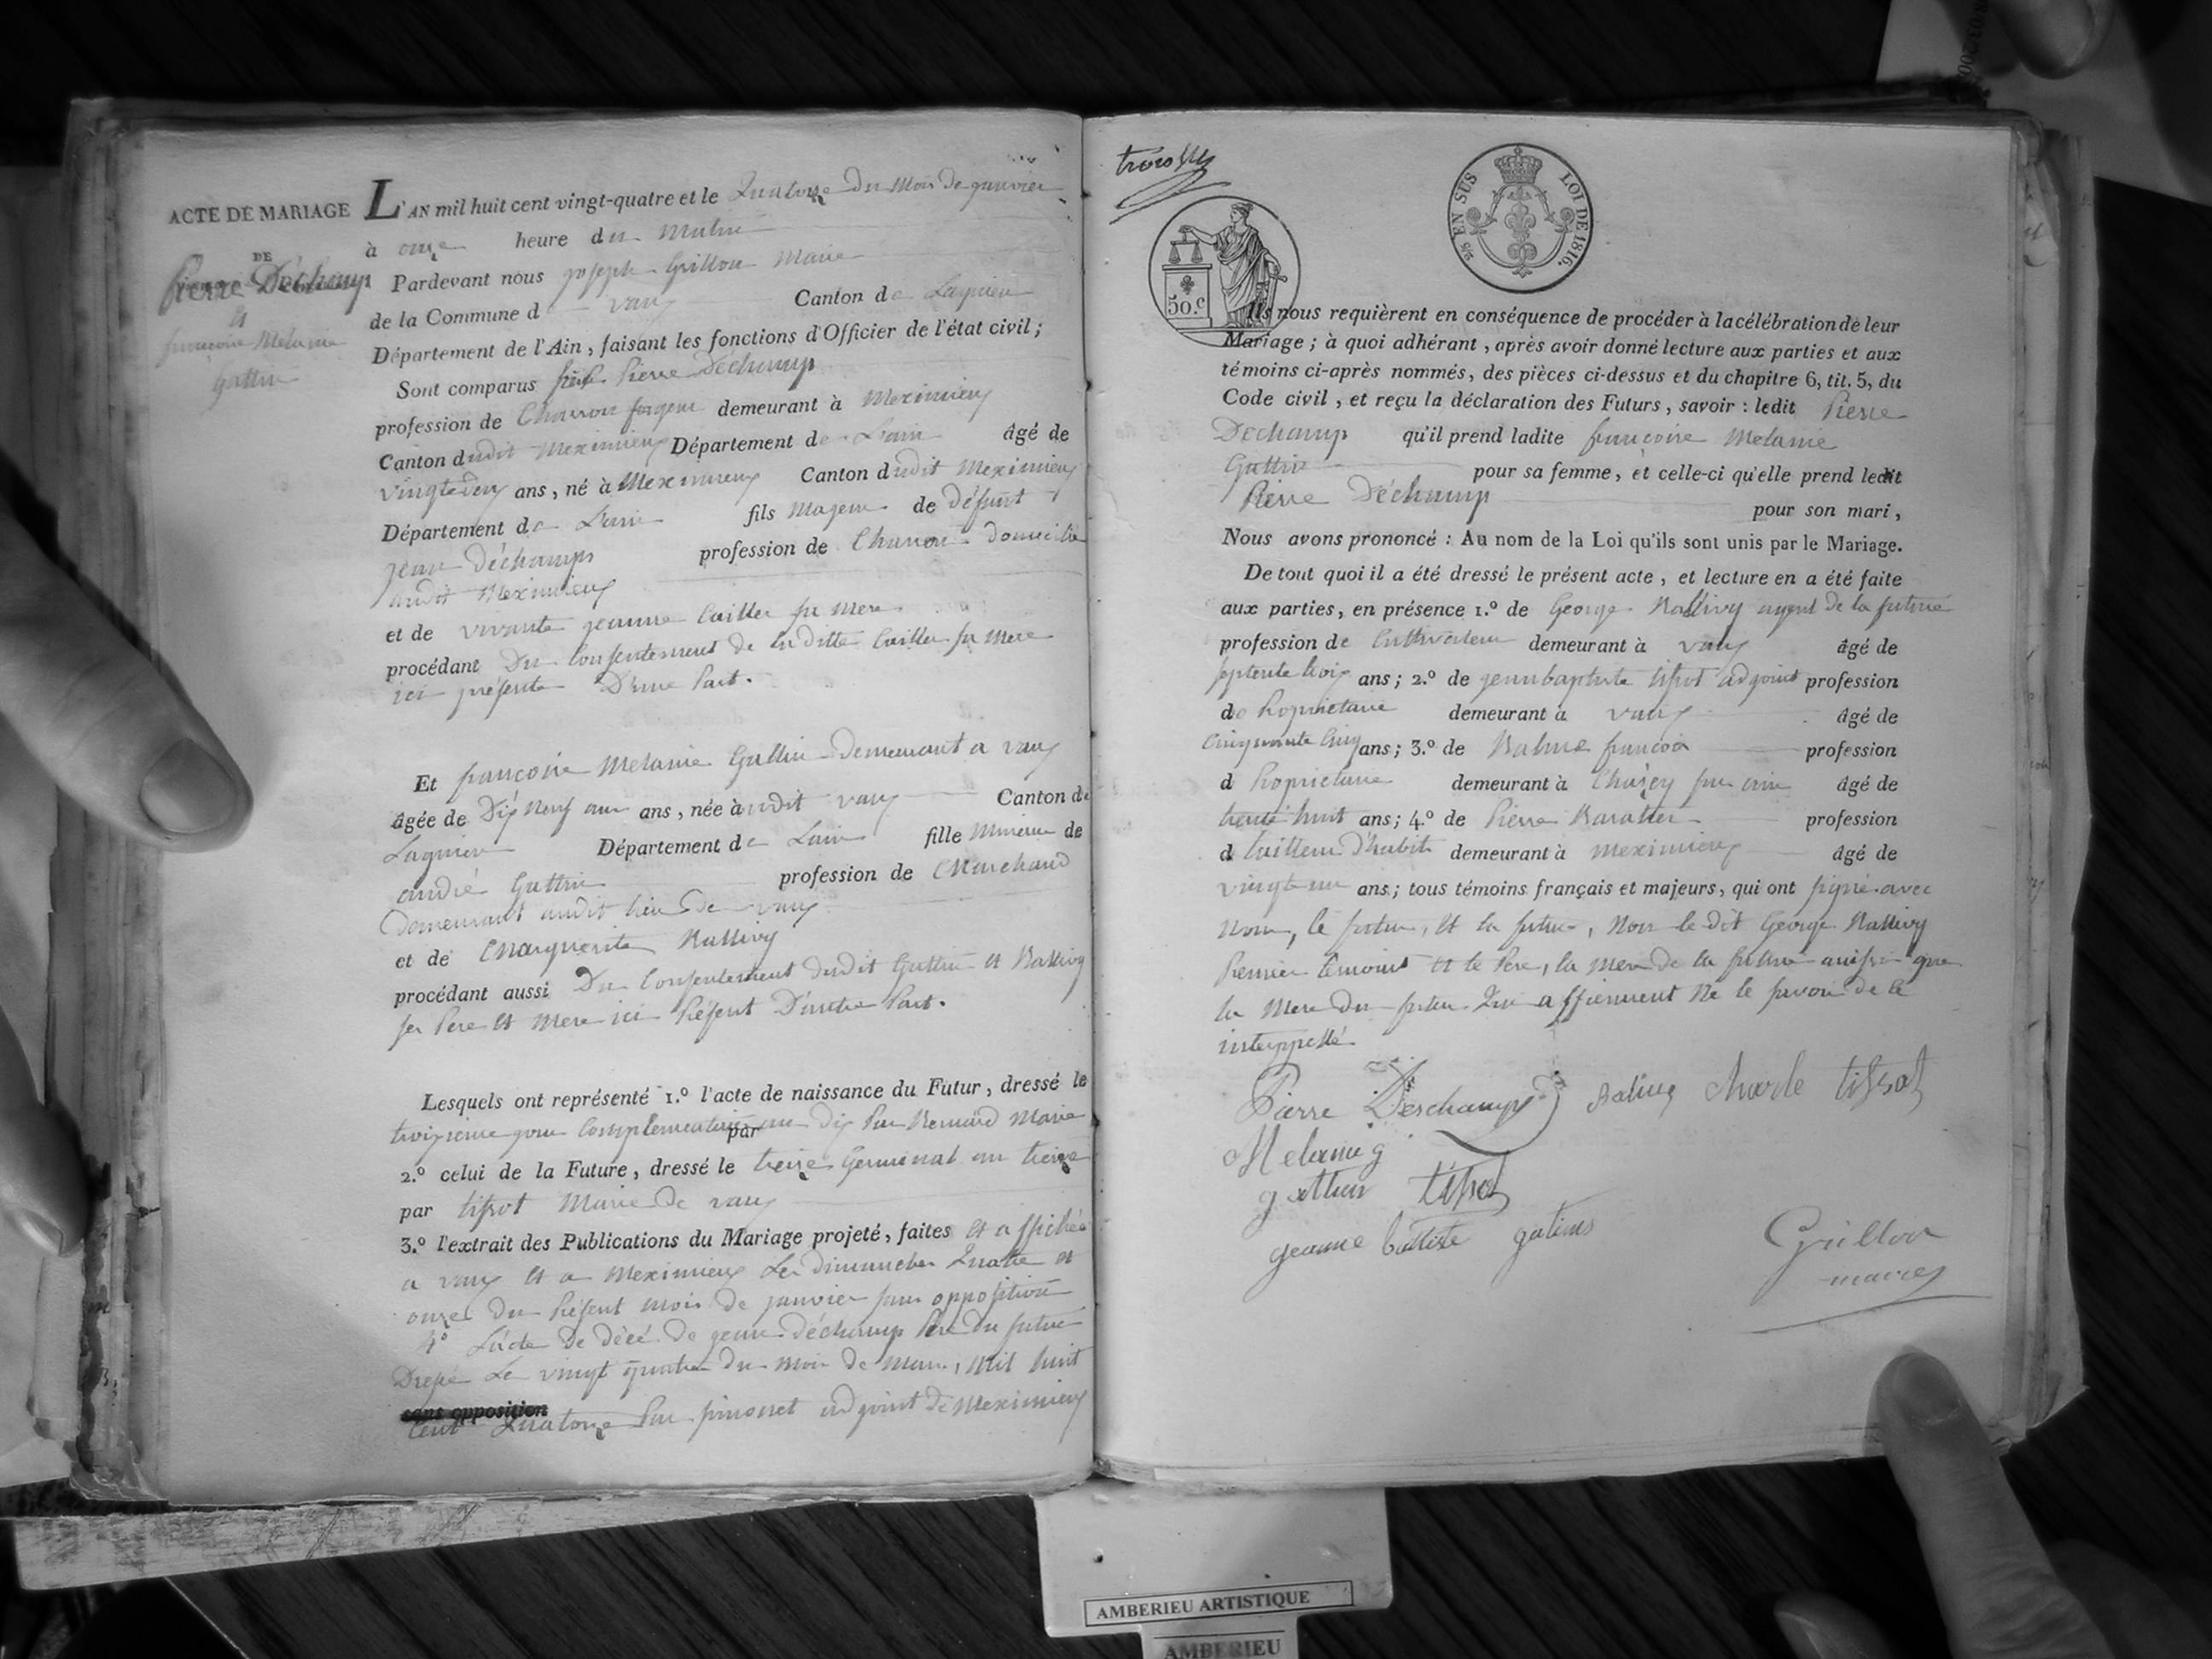 ACTE DE MARIAGE
DE
Pierre Déchamp
et
françoise Mélanie
Guttin
L'AN mil huit cent vingt-quatre et le Quatorze du mois de janvier
à onze heure du matin
Pardevant nous joseph Grillon Maire
de la Commune d vaux Canton de Lagnieu
Département de l'Ain, faisant les fonctions d'Officier de l'état civil;
Sont comparus Pierre Déchamp
profession de Charron forgeur demeurant à Meximieux
Canton dudit Meximieux Département de Lain âgé de
vingt deux ans, né à Meximieux Canton dudit Meximieux
Département de Lain fils Majeur de défunt
jean Déchamps profession de Charron domicilié
audit Meximieux
et de vivante jeanne Cailler sa Mere
procédant Du Consentement de laditte Cailler sa Mere
ici présente D'une Part.
Et françoise Melanie Guttin demeurant a vaux
âgée de Dix Neuf ans, née à udit vaux Canton de
Lagnieu Département de Lain fille Mineure de
andré Guttin profession de Marchand
Demeurant audit lieu de vaux
et de Marguerite Rallivy
procédant aussi Du Consentement dudit Guttin et Rallivy
ses Pere et Mere ici Présent D'autre Part.
Lesquels ont représenté 1.º l'acte de naissance du Futur, dressé le
troisième jour Complementaire an dix Par Renard Maire
par
2.º celui de la Future, dressé le treize Germinal an treize
par tissot Maire de vaux
3.º l'extrait des Publications du Mariage projeté, faites et affichée
a vaux et a Meximieux Les dimanches Quatre et
onze du Présent mois de janvier sans opposition
4º L'acte de décé de jean déchamp Pere du futur
Dressé Le vingt quatre du mois de Mars, Mil huit
sans opposition
Cent Quatorze Par adjoint de Meximieux
trois
50.c
25 EN SUS LOI DE 1816.
Ils nous requièrent en conséquence de procéder à la célébration de leur
Mariage; à quoi adhérant, après avoir donné lecture aux parties et aux
témoins ci-après nommés, des pièces ci-dessus et du chapitre 6, tit. 5, du
Code civil, et reçu la déclaration des Futurs, savoir: ledit Pierre
Déchamp qu'il prend ladite françoise Melanie
Guttin pour sa femme, et celle-ci qu'elle prend ledit
Pierre Déchamp
pour son mari,
Nous avons prononcé: Au nom de la Loi qu'ils sont unis par le Mariage.
De tout quoi il a été dressé le présent acte, et lecture en a été faite
aux parties, en présence 1.º de George Rallivy ayeul de la future
profession de Cultivateur demeurant à vaux âgé de
septente trois ans; 2.º de jeanbaptiste tissot adjoint profession
de Proprietaire demeurant à vaux âgé de
Cinquante Cinq ans; 3.º de Balme françois profession
d Proprietaire demeurant à Chazey sur ain âgé de
trente huit ans; 4.º de Pierre Baratier profession
d tailleur D'habit demeurant à meximieux âgé de
vingt un ans; tous témoins français et majeurs, qui ont signé avec
Nous, le futur, et la future, Non le dit George Rallivy
Premier temoint et le Pere, la Mere de la future aussi que
la Mere du futur Qui affirment Ne le savoir de ce
interppellé
Pierre Deschamps Balme Charle tissot
Melanie g
gattien tissot
jeanne battiste gatins
Grillon
maire
AMBERIEU ARTISTIQUE
AMBERIEU